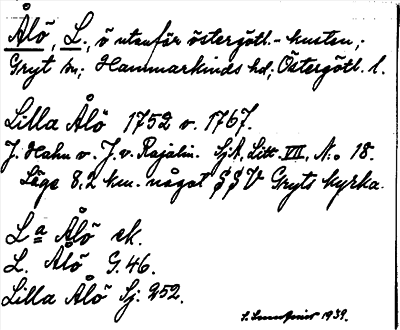 Ålö, L., ö utanför östergötl.-kusten;
Gryt sn; Hammarkinds hd; Östergötl. l.
Lilla Ålö 1752 o. 1767.
J. Hahn o. J. v. Rajalin. SjA, Litt. VII, N:o 18.
Läge 8.2 km. något SSV Gryts kyrka.
La Ålö ek.
L. Ålö G. 46.
Lilla Ålö Sj. 252.
1939.